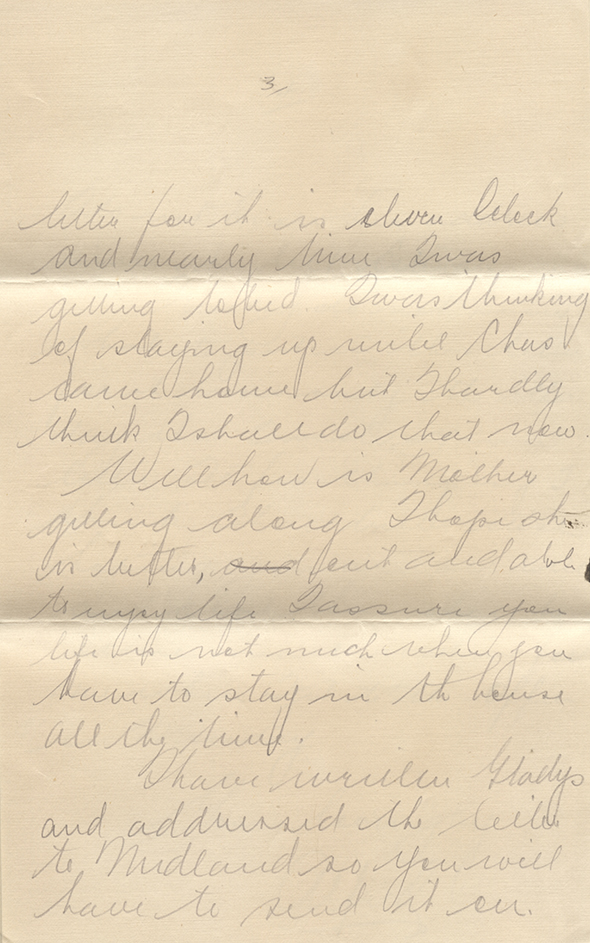 3,
letter for it is eleven Oclock
and nearly time I was
getting to bed. I was thinking
of staying up until Chas
came home but I hardly
think I shall do that now.
Well how is Mother
getting along I hope she
is better, and out and able
to enjoy life I assure you
life is not much when you
have to stay in th house
all the time.
I have written Gladys
and addressed th letter
to Midland so you will
have to send it on.